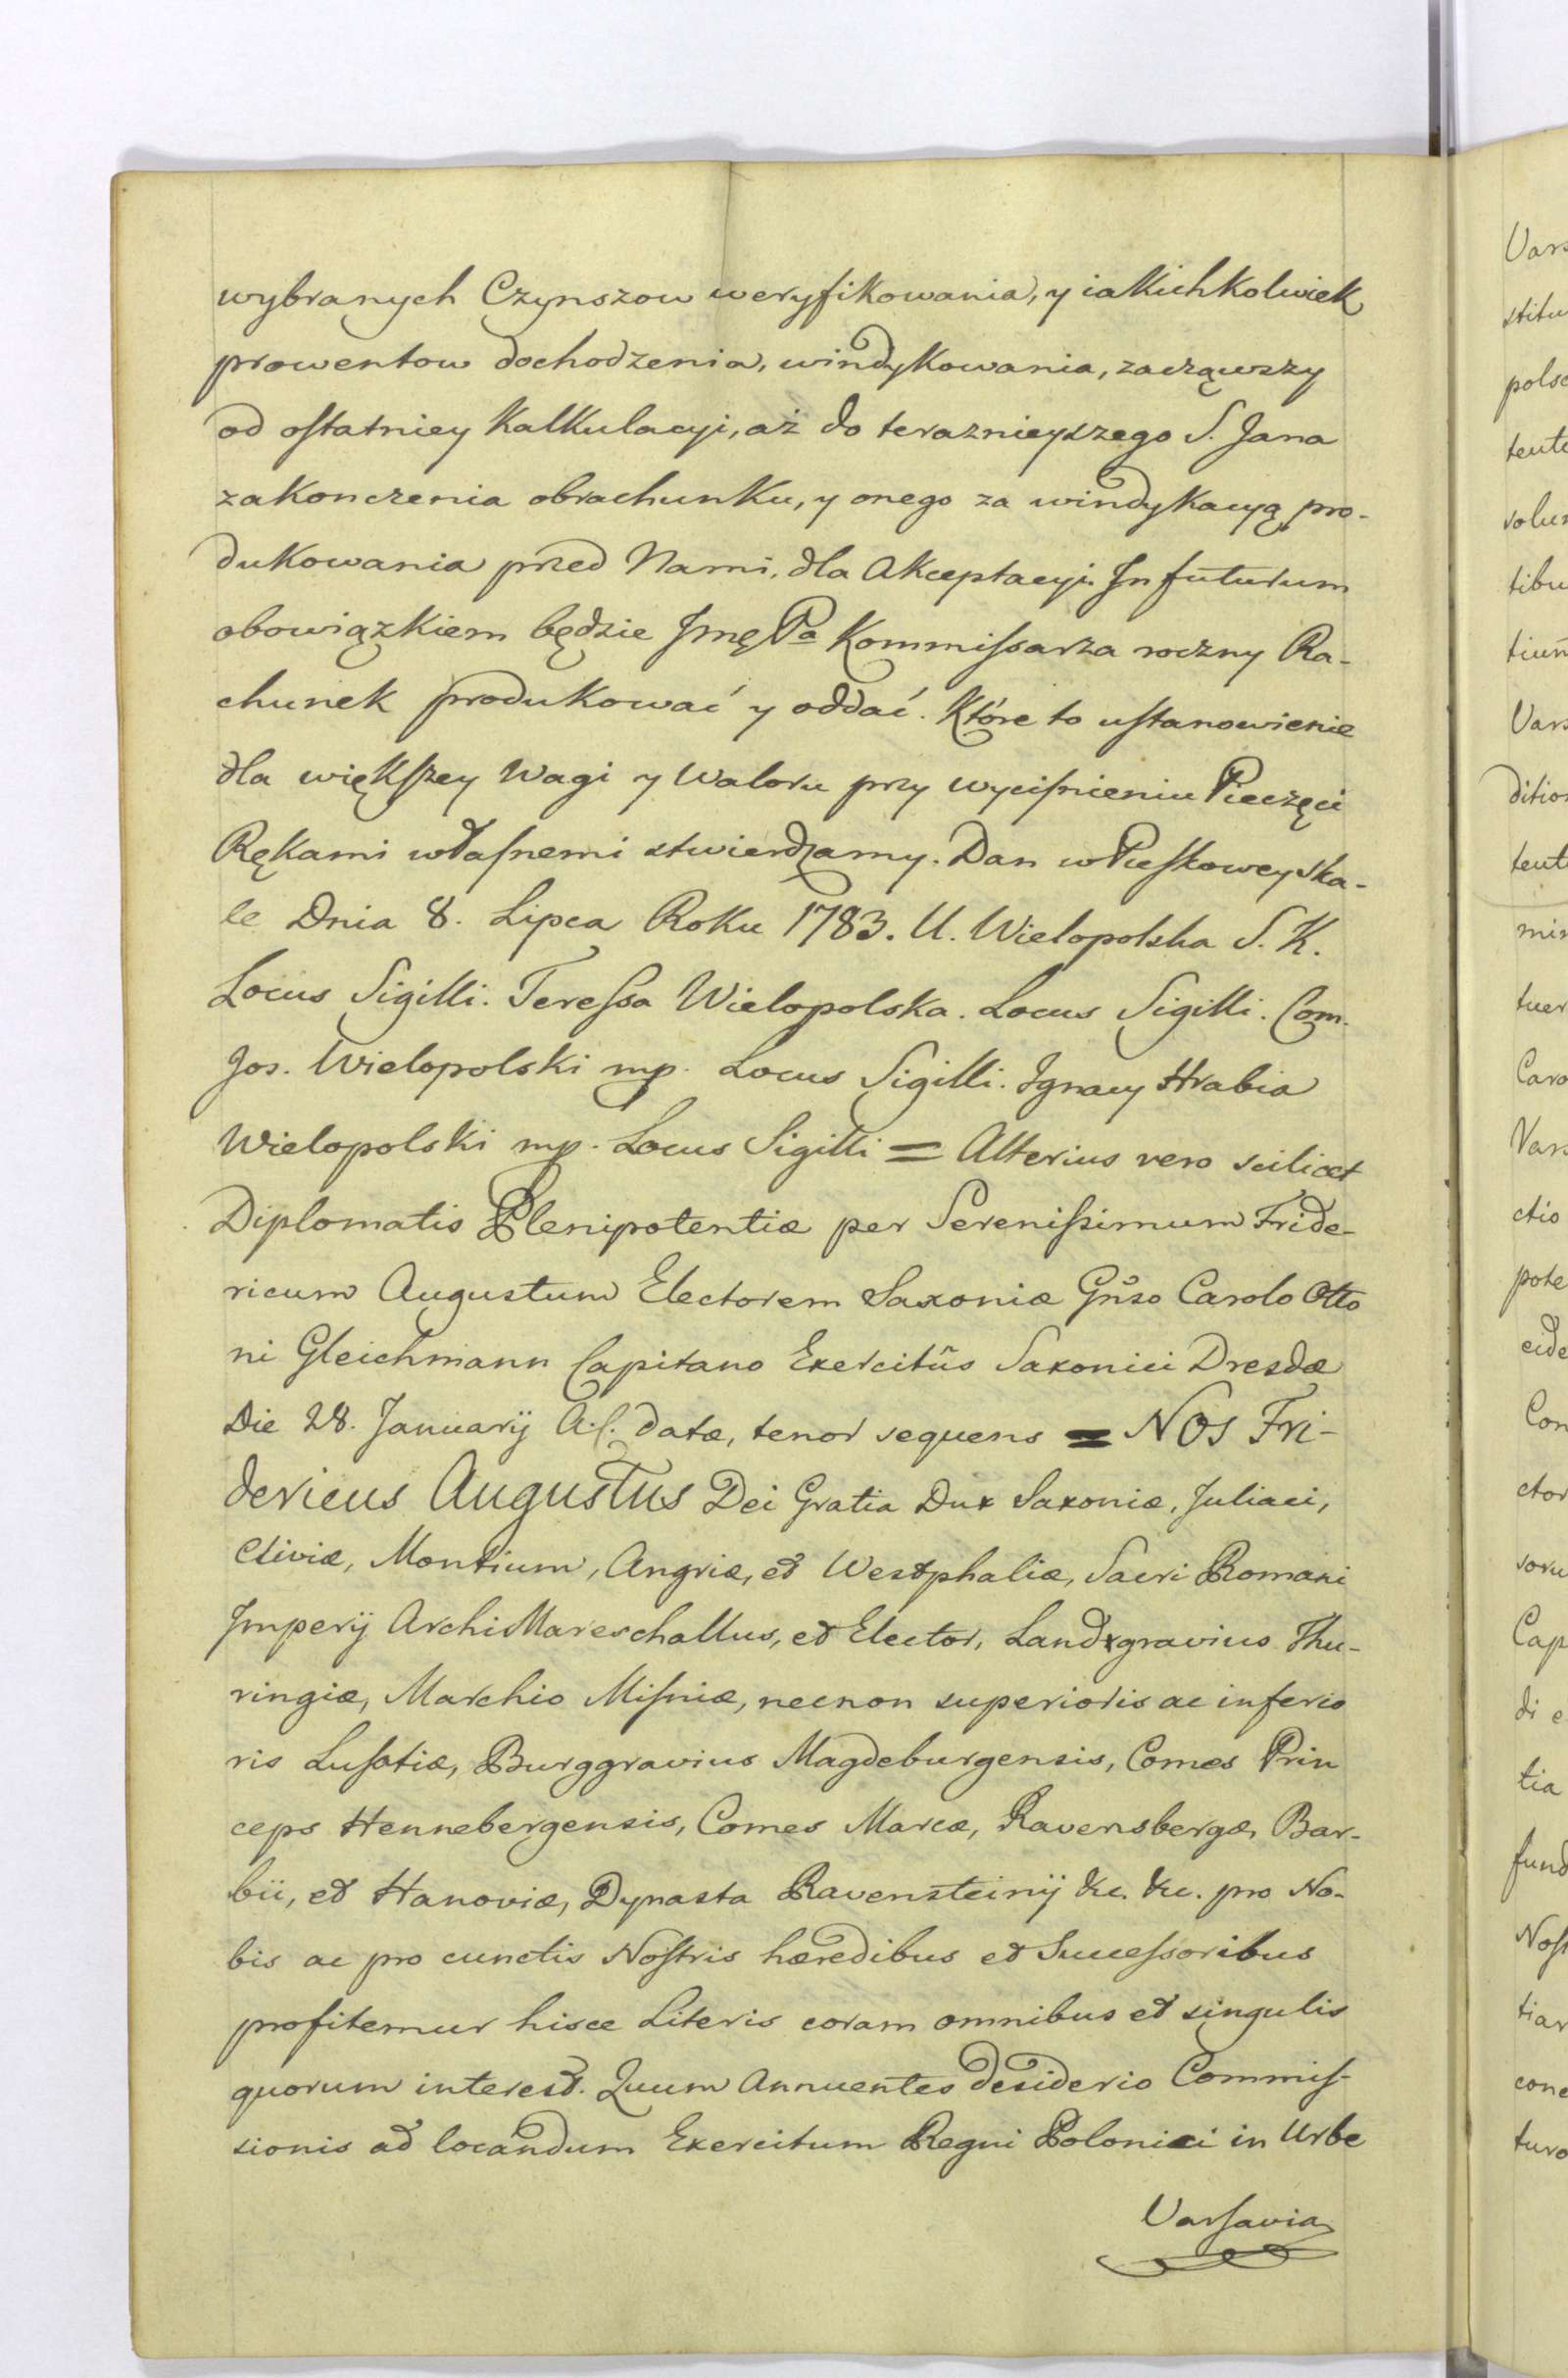 wybranych Czynszow weryfikowania, y iakichkolwiek
prowentow dochodzenia, windykowania, zacząwszy
od ostatniey Kalkulacyi, aż do teraznieyszego S. Jana
zakonczenia obrachunku, y onego za windykacyą pro-
dukowania przed Nami, dla Akceptacyi. In futurum
obowiązkiem będzie Jmę Pa Kommissarza roczny Ra-
chunek produkować y oddać. Które to ustanowienie
dla większey Wagi y Waloru przy wyciśnieniu Pieczęci
Rękami własnemi stwierdzamy. Dan w Pieskowey ska-
le Dnia 8. Lipca Roku 1783. U. Wielopolska S. K.
Locus Sigilli. Teressa Wielopolska. Locus Sigilli. Com.
Jos. Wielopolski mp. Locus Sigilli. Ignacy Hrabia
Wielopolski mp. Locus Sigilli = Alterius vero scilicet
Diplomatis Plenipotentiæ per Serenissimum Fride-
ricum Augustum Electorem Saxoniæ Gnso Carolo Otto
ni Gleichmann Capitano Exercitûs Saxonici Dresdæ
Die 28. Januarij A. c. datæ, tenor sequens = NOS Fri-
dericus Augustus Dei Gratia Dux Saxoniæ, Juliaci,
Cliviæ, Montium, Angriæ, et Westphaliæ, Sacri Romani
Imperij ArchiMareschallus, et Elector, Landgravius Thu-
ringiæ, Marchio Misniæ, necnon superioris ac inferio
ris Lusatiæ, Burggravius Magdeburgensis, Comes Prin
ceps Hennebergensis, Comes Marcæ, Ravensbergæ, Bar-
bii, et Hanoviæ, Dynasta Ravensteinij &c. &c. pro No-
bis ac pro cunctis Nostris hæredibus et Successoribus
profitemur hisce Literis coram omnibus et singulis
quorum interest. Quum Annuentes desiderio Commis-
sionis ad locandum Exercitum Regni Polonici in Urbe
Varsavia
Vars
stitu
polsc
tent
volun
tibu
tium
Vars
ditio
tent
min
tuer
Caro
Vars
ctio
pote
eide
Con
ctor
soru
Cap
di e
tia
fund
Nost
tiar
conc
turo